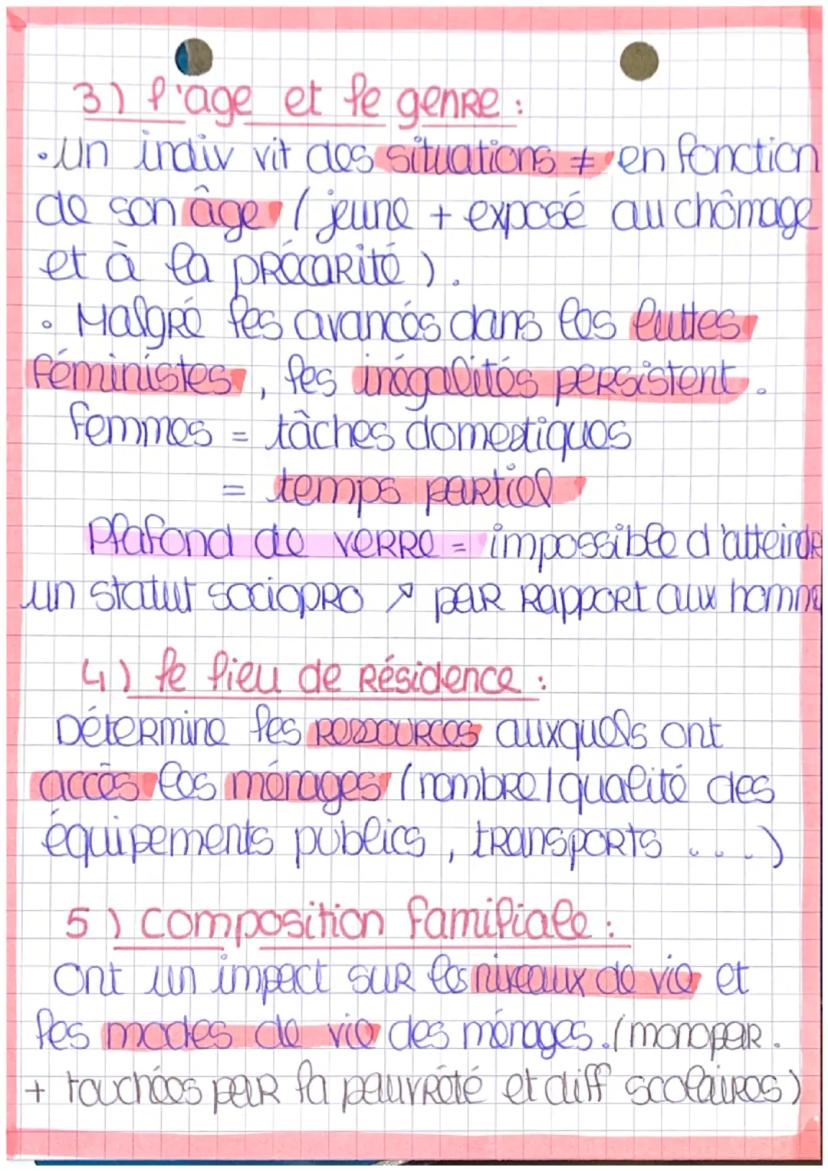 3) l'age et le genre :
• Un indiv vit des situations ≠ en fonction
de son âge (jeune + exposé au chômage
et à la précarité).
• Malgré les avancés dans les luttes
féministes, les inégalités persistent.
femmes = tâches domestiques
= temps partiel
Plafond de verre = impossible d'atteindre
un statut sociopro ↗ par rapport aux homme
4) le lieu de résidence :
Détermine les ressources auxquels ont
accès les ménages (nombre/qualité des
équipements publics, transports ....)
5) Composition familiale :
Ont un impact sur les niveaux de vie et
les modes de vie des ménages. (monopar.
+ touchées par la pauvreté et diff scolaires)